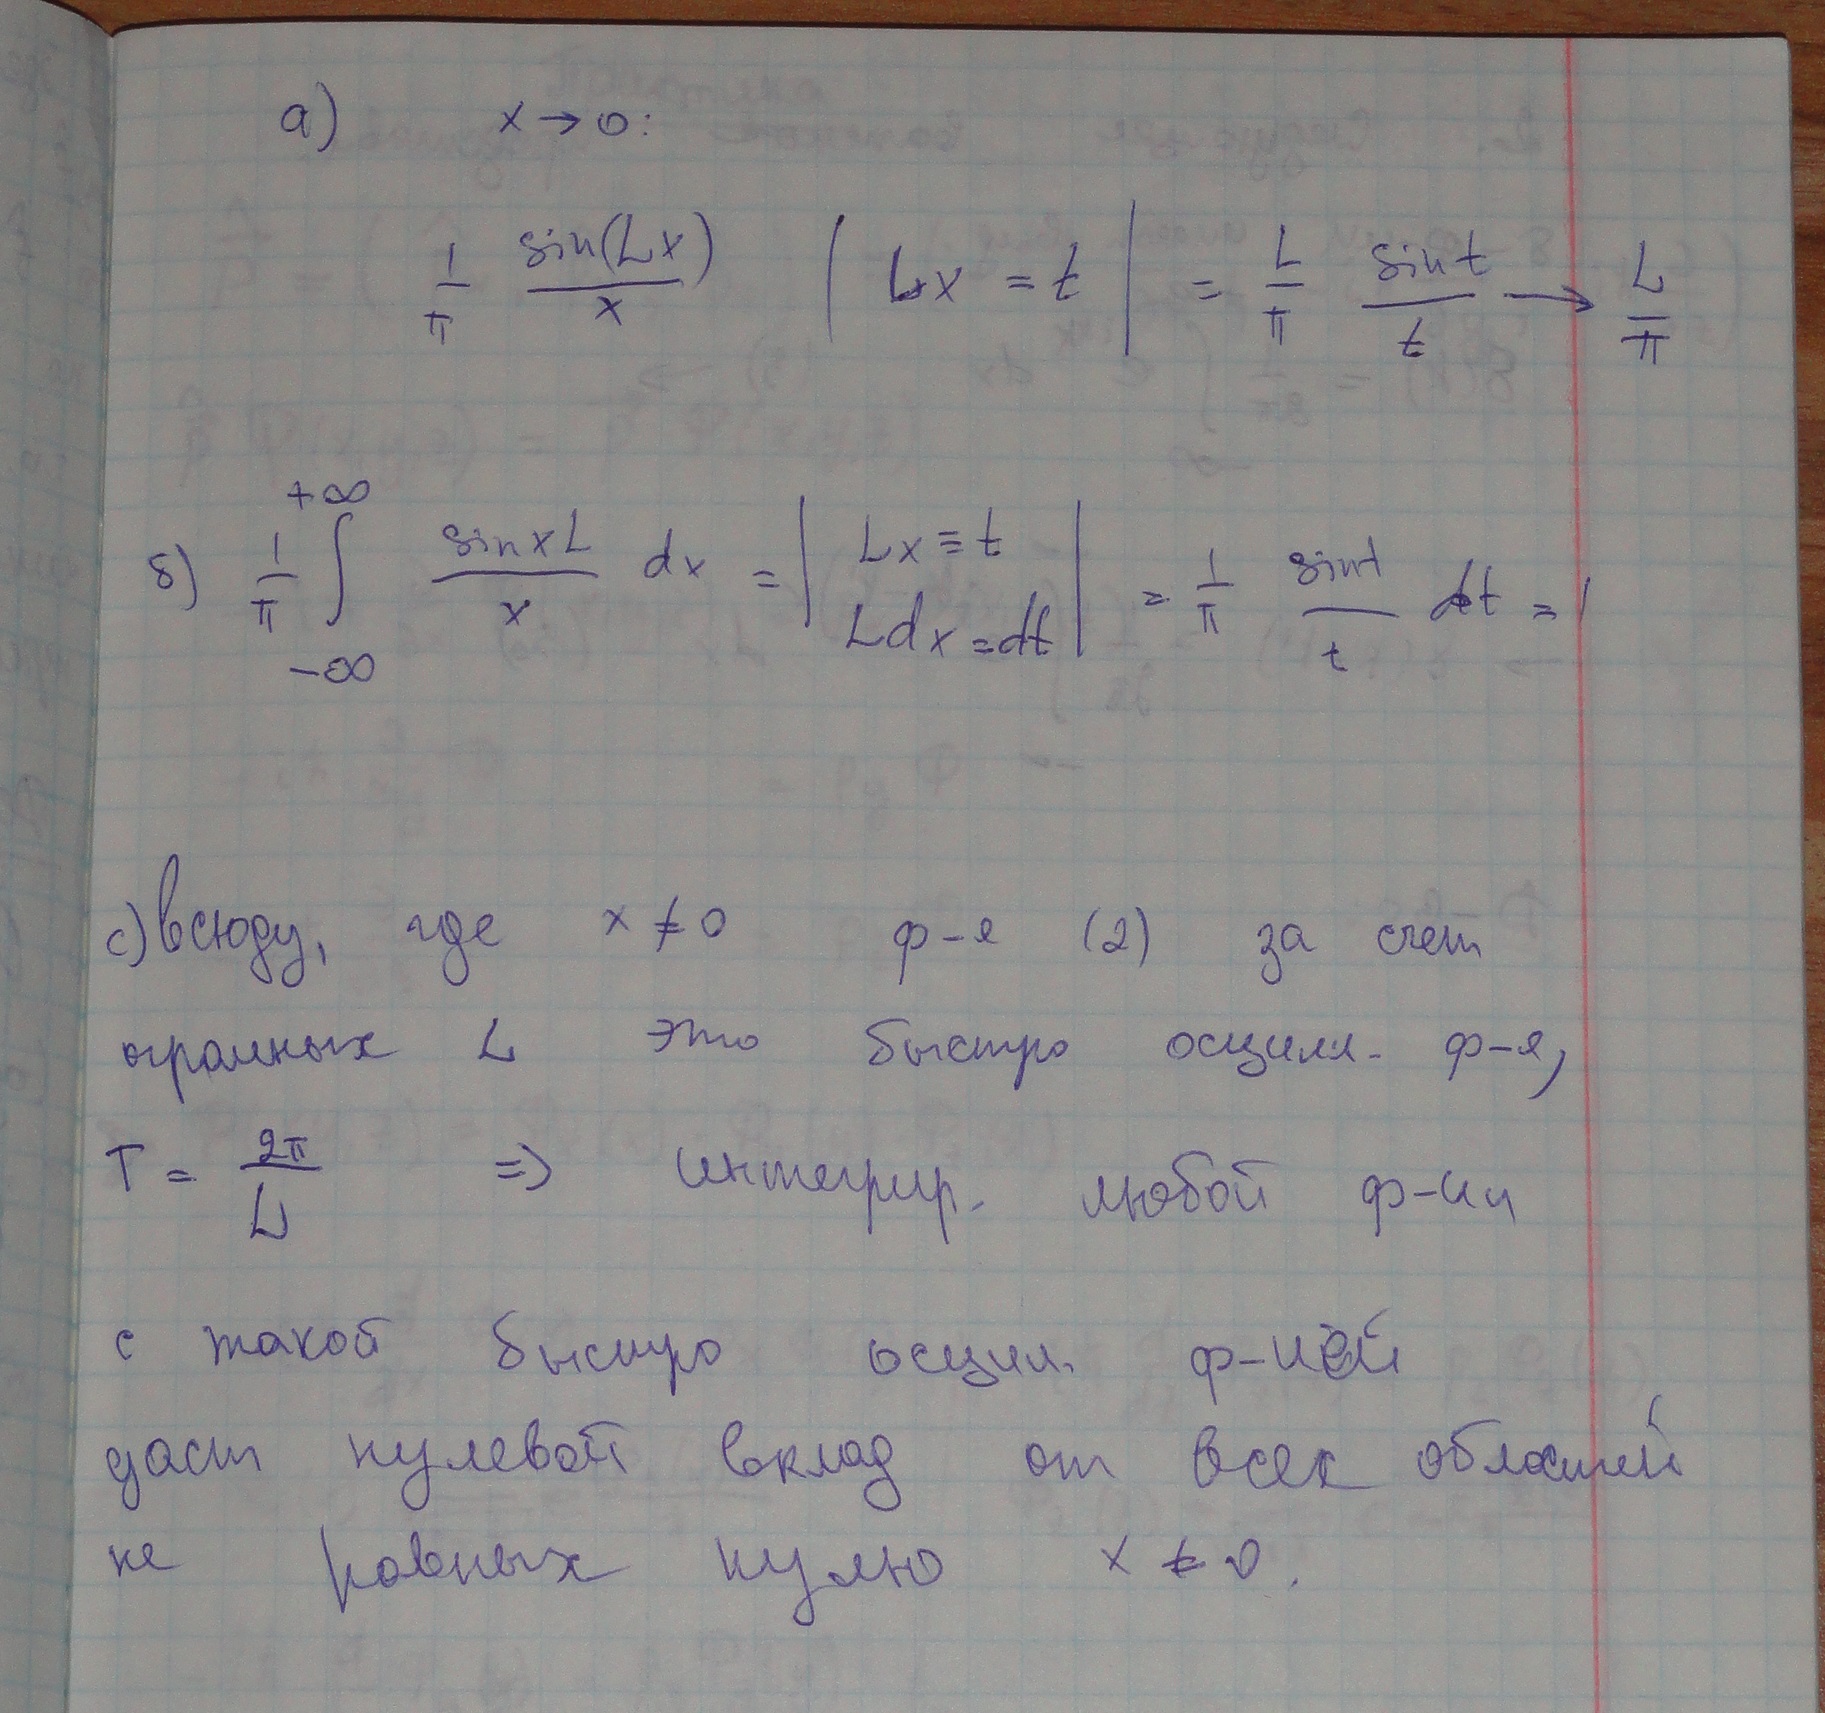 а) x → 0:
1/π sin(Lx)/x | Lx = t | = L/π sin t/t → L/π
б) 1/π ∫_{-∞}^{+∞} sin xL/x dx = | Lx = t Ldx = dt | = 1/π sin t/t dt = 1
с) всюду, где x ≠ 0 ф-я (2) за счет
огромных L это быстро осцилл. ф-я,
T = 2π/L => интегрир. любой ф-ии
с такой быстро осцил. ф-ией
даст нулевой вклад от всех областей
не равных нулю x ≠ 0.